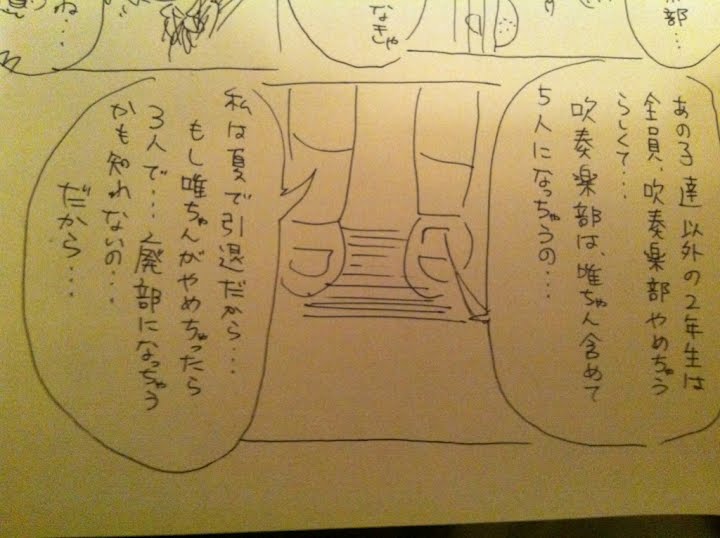 部…
なきゃ
ね…
あの子達以外の2年生は
全員、吹奏楽部やめちゃう
らしくて…
吹奏楽部は、唯ちゃん含めて
5人になっちゃうの…
私は夏で引退だから…
もし唯ちゃんがやめちゃったら
3人で…廃部になっちゃう
かも知れないの…
だから…